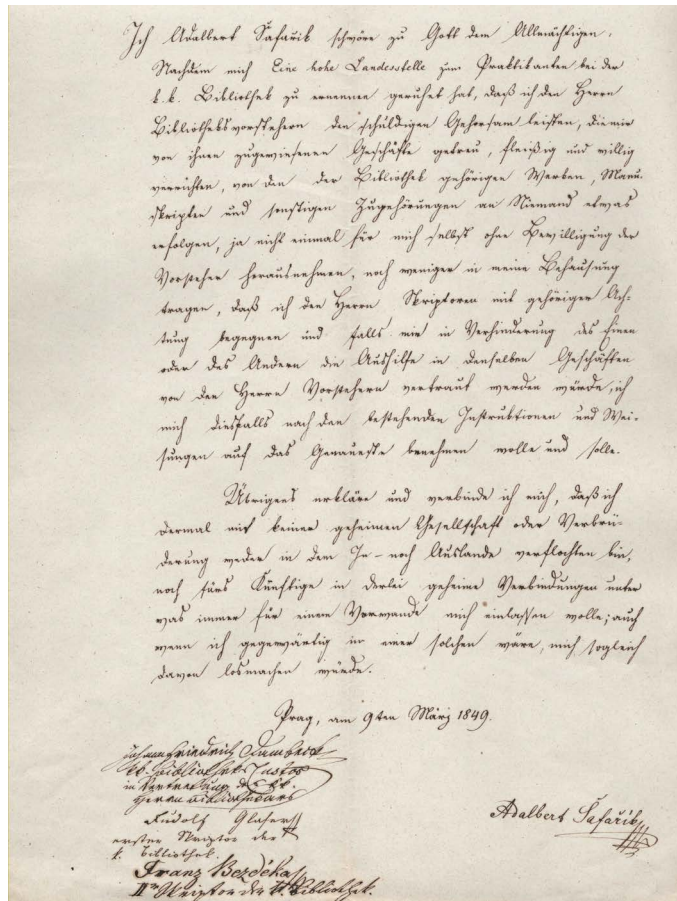 Ich Adalbert Šafařik schwöre zu Gott dem Allmächtigen,
Nachdem mich Eine hohe Landesstelle zum Praktikanten bei der
k.k. Bibliothek zu ernennen geruhet hat, daß ich den Herrn
Bibliotheksvorstehern den schuldigen Gehorsam leisten, die mir
von ihnen zugewiesenen Geschäfte getreu, fleißig und willig
verrichten, von den der Bibliothek gehörigen Werken, Manu-
skripten und sonstigen Zugehörungen an Niemand etwas
erfolgen, ja nicht einmal für mich selbst ohne Bewilligung der
Vorsteher herausnehmen, noch weniger in meine Behausung
tragen, daß ich den Herrn Skriptoren mit gehöriger Ach-
tung begegnen und falls mir in Verhinderung des Einen
oder des Andern die Aushilfe in denselben Geschäften
von den Herrn Vorstehern vertraut werden würde, ich
mich diesfalls nach den bestehenden Instruktionen und Wei-
sungen auf das Genaueste benehmen wolle und solle.
Übrigens erkläre und verbinde ich mich, daß ich
dermal mit keiner geheimen Gesellschaft oder Verbrü-
derung weder in dem In- noch Auslande verflochten bin,
noch fürs Künftige in derlei geheime Verbindungen unter
was immer für einem Vorwande mich einlassen wolle; auch
wenn ich gegenwärtig in einer solchen wäre, mich sogleich
davon losmachen würde.
Prag, am 9ten März 1849.
Johann Friedrich
k.k. Bibliotheks Custos
in Vertretung des k.k.
Herrn Bibliothekars
Adalbert Šafařik
Rudolf Glaser
erster Skriptor der
k. Bibliothek.
Franz Bezděka
IIr Skriptor der k.k. Bibliothek.